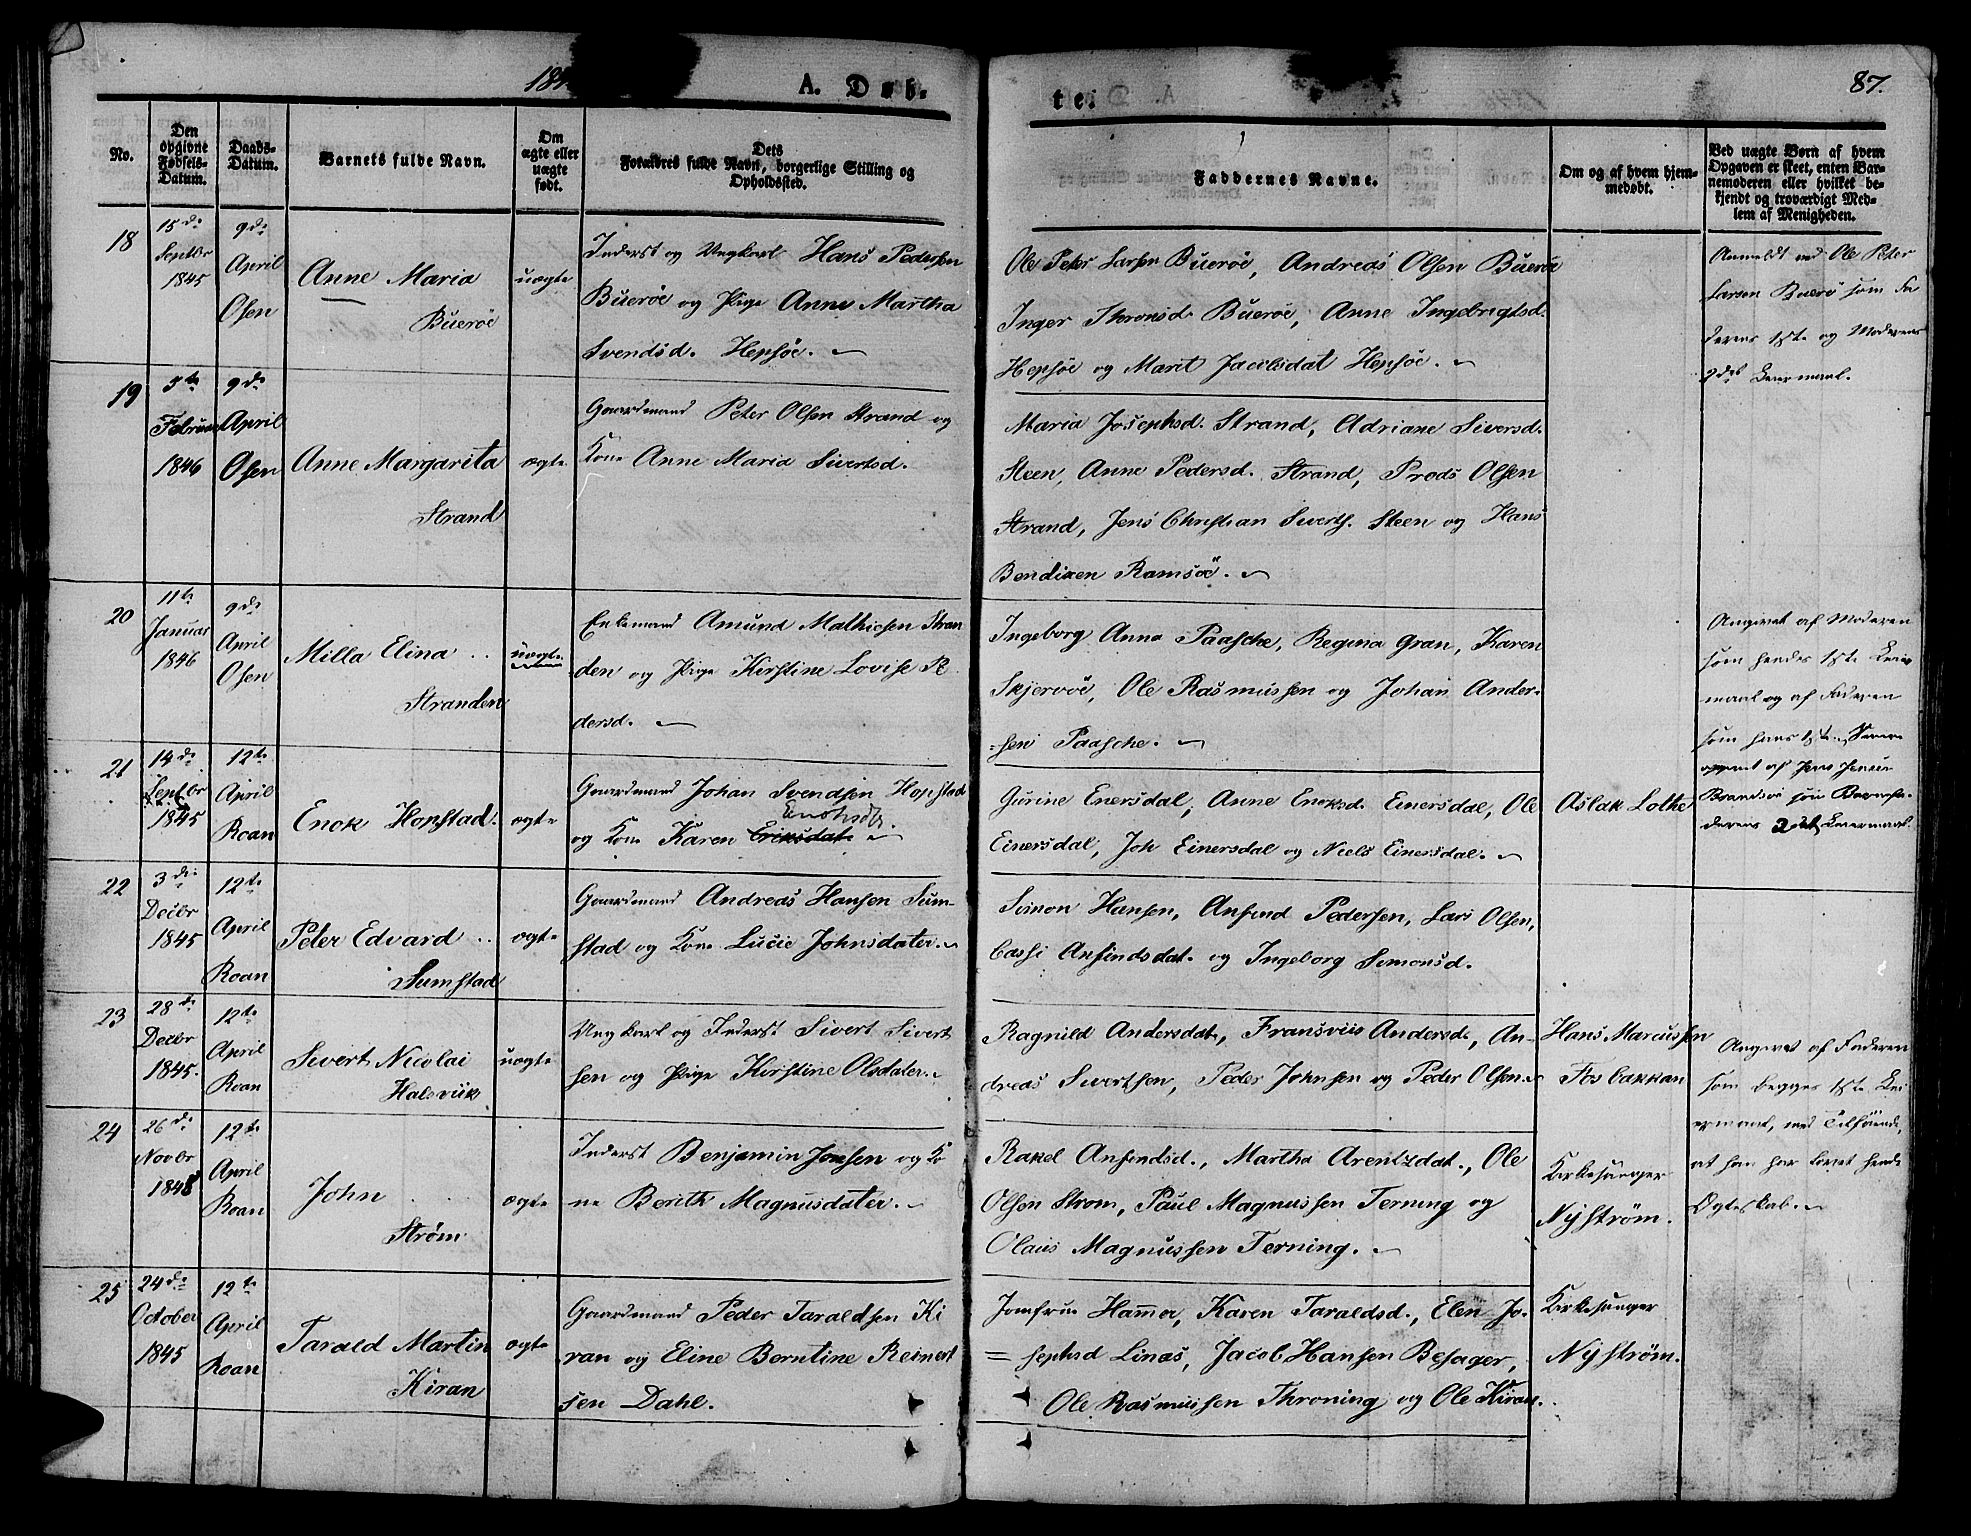 184
A. Døb-
te.
87.
No.
Den opgivne Fødsels-Datum.
Daabs-Datum.
Barnets fulde Navn.
Om ægte eller uægte født.
Dets Forældres fulde Navn, borgerlige Stilling og Opholdssted.
Faddernes Navne.
Om og af hvem hjem-
medøbt.
Ved uægte Børn af hvem
Opgaven er skeet, enten Bar-
nemoderen eller hvilket be-
kjendt og troværdigt Med-
lem af Menigheden.
18
15de
Septbr
1845
9de
April
Osen
Anne Maria
Buerøe
uægte
Inderst og Ungkarl Hans Pedersen
Buerøe og Pige Anne Martha
Svendsd. Hepsøe.
Ole Peter Larsen Buerøe, Andreas Olsen Buerøe
Inger Thronsd. Buerøe, Anne Ingebrigtsd.
Hepsøe og Marit Jacobsdat Hepsøe.
Anmeldt ved Ole Peter
Larsen Buerø som Fa
derens 1ste og Moderens
2det Leiermaal.
19
5te
Februar
1846
9de
April
Osen
Anne Margarita
Strand
ægte
Gaardmand Peter Olsen Strand og
Kone Anne Maria Sivertsd.
Maria Josephsd. Strand, Adriane Siversd.
Steen, Anne Pedersd. Strand, Prods Olsen
Strand, Jens Christian Siverts. Steen og Hans
Bendixen Ramsöe.
20
11te
Januar
1846
9de
April
Osen
Milla Elina
Stranden
uægte
Enkemand Amund Mathiesen Stran
den og Pige Kirstine Lovise Pe
dersd.
Ingeborg Anna Paasche, Regina Gran, Karen
Skjervöe, Ole Rasmussen og Johan Ander-
sen Paasche.
Angivet af Moderen
som hendes 1ste Leier
maal og af Faderen
som hans 1ste.
opgivet af Jens Jensen
Brandsø som Barnefa-
derens 2det Leiermaal.
21
14de
Septbr
1845
12te
April
Roan
Enok Hopstad.
ægte
Gaardmand Johan Svendsen Hopstad
Enoksdtr.
og Kone Karen Eriksdat.
Gurine Enersdal, Anne Enoksd. Einersdal, Ole
Einersdal, Joh Einersdal og Niels Einersdal.
Aslak Lothe
22
3de
Decbr
1845
12te
April
Roan
Peter Edvard
Sumstad
ægte
Gaardmand Andreas Hansen Sum-
stad og Kone Lucie Johnsdater.
Simon Hansen, Anfind Pedersen, Lars Olsen,
Cassi Anfindsdat. og Ingeborg Simonsd.
23
28de
Decbr
1845.
12te
April
Roan
Sivert Nicolai
Halsviik
uægte
Ungkarl og Inderst Sivert Sivert
sen og Pige Kirstine Olsdater.
Ragnild Andersdat., Fransviis Andersd., An-
dreas Sivertsen, Peder Johnsen og Peder Olsen.
Hans Marcussen
Fos bakkan
Angivet af Faderen
som begges 1ste Lei
ermaal, med Tilføiende,
at han har lovet hende
Ægteskab.
24
26de
Novbr
1845
12te
April
Roan
John
Strøm
ægte
Inderst Benjamin Jonsen og Ko
ne Berith Magnusdater.
Rakel Anfindsd., Martha Arentzdat., Ole
Olsen Strom, Paul Magnussen Terning og
Olaus Magnussen Terning.
Kirkesanger
Nÿström.
25
24de
October
1845
12te
April
Roan
Tarald Martin
Kiran
ægte
Gaardmand Peder Taraldsen Ki
ran og Eline Berntine Reinert
sen Dahl.
Jomfrue Hammer, Karen Taraldsd., Elen Jo-
= sephsd Linæs, Jacob Hansen Besager,
Ole Rasmussen Throning og Ole Kiran.
Kirkesanger
Nÿström.